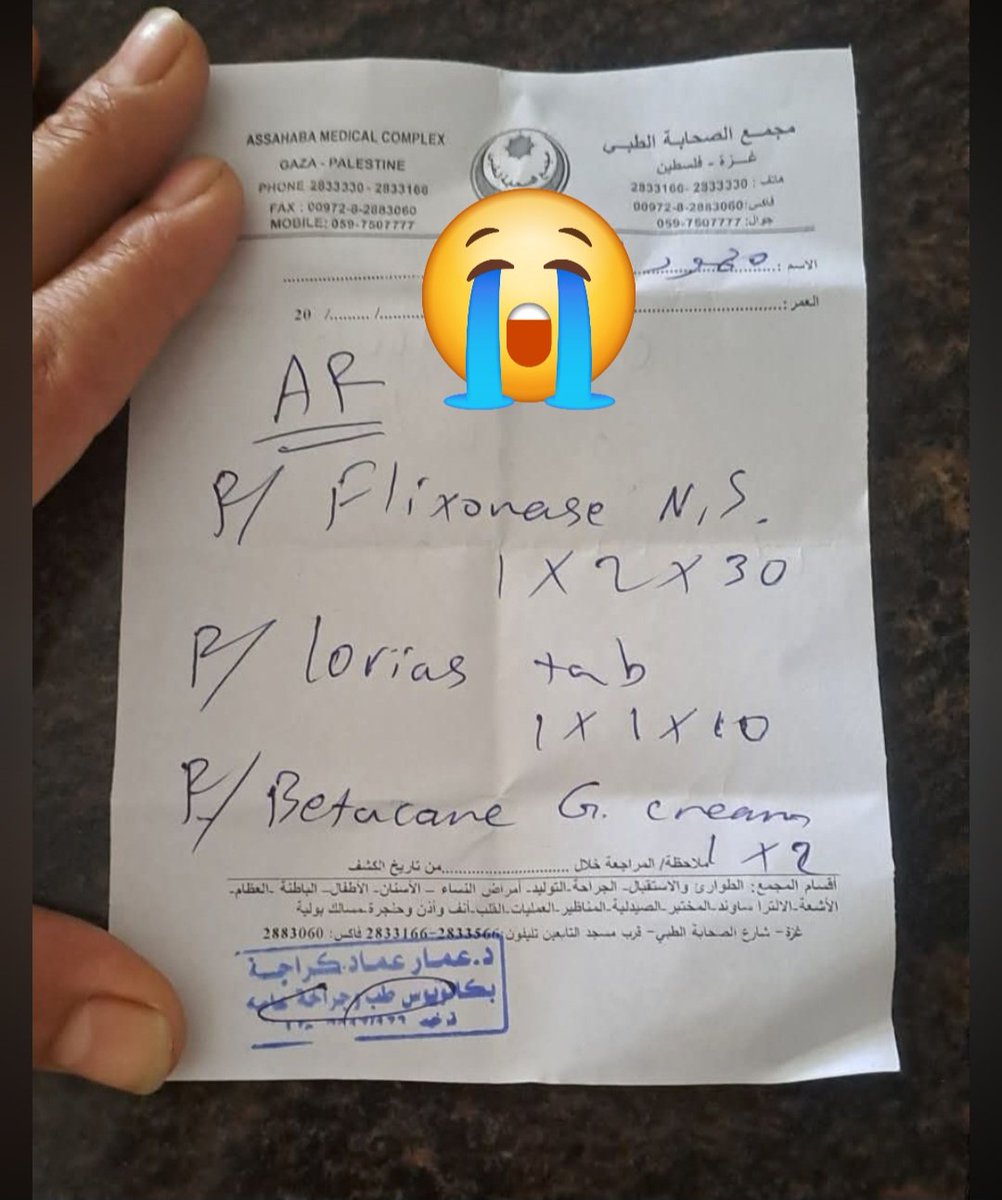 ASSAHABA MEDICAL COMPLEX
GAZA - PALESTINE
PHONE 2833330 - 2833166
FAX : 00972-8-2883060
MOBILE: 059-7607777
مجمع الصحابة الطبي
غـزة - فلسطين
هاتف : 2833330 -2833166
فاكس:2883060-8-00972
جوال: 7607777-059
الاسم :
العمر:
20 /........ /........
AR
R/ Flixonase N.S.
1 X 2 X 30
R/ lorias tab
1 X 1 X 10
R/ Betacane G. cream
1 X 2
ملاحظة/ المراجعة خلال ........................من تاريخ الكشف
أقسام المجمع: الطوارئ والاستقبال- الجراحة-التوليد- أمراض النساء – الأسنان- الأطفال– الباطنة –العظام-
الأشعة-الالترا ساوند-المختبر-الصيدلية-المناظير-العمليات-القلب-أنف وأذن وحنجرة-مسالك بولية
غزة- شارع الصحابة الطبي- قرب مسجد التابعين تليفون:2833566-2833166 فاكس: 2883060
د.عمار عماد كراجة
بكالوريوس طب وجراحة عامة